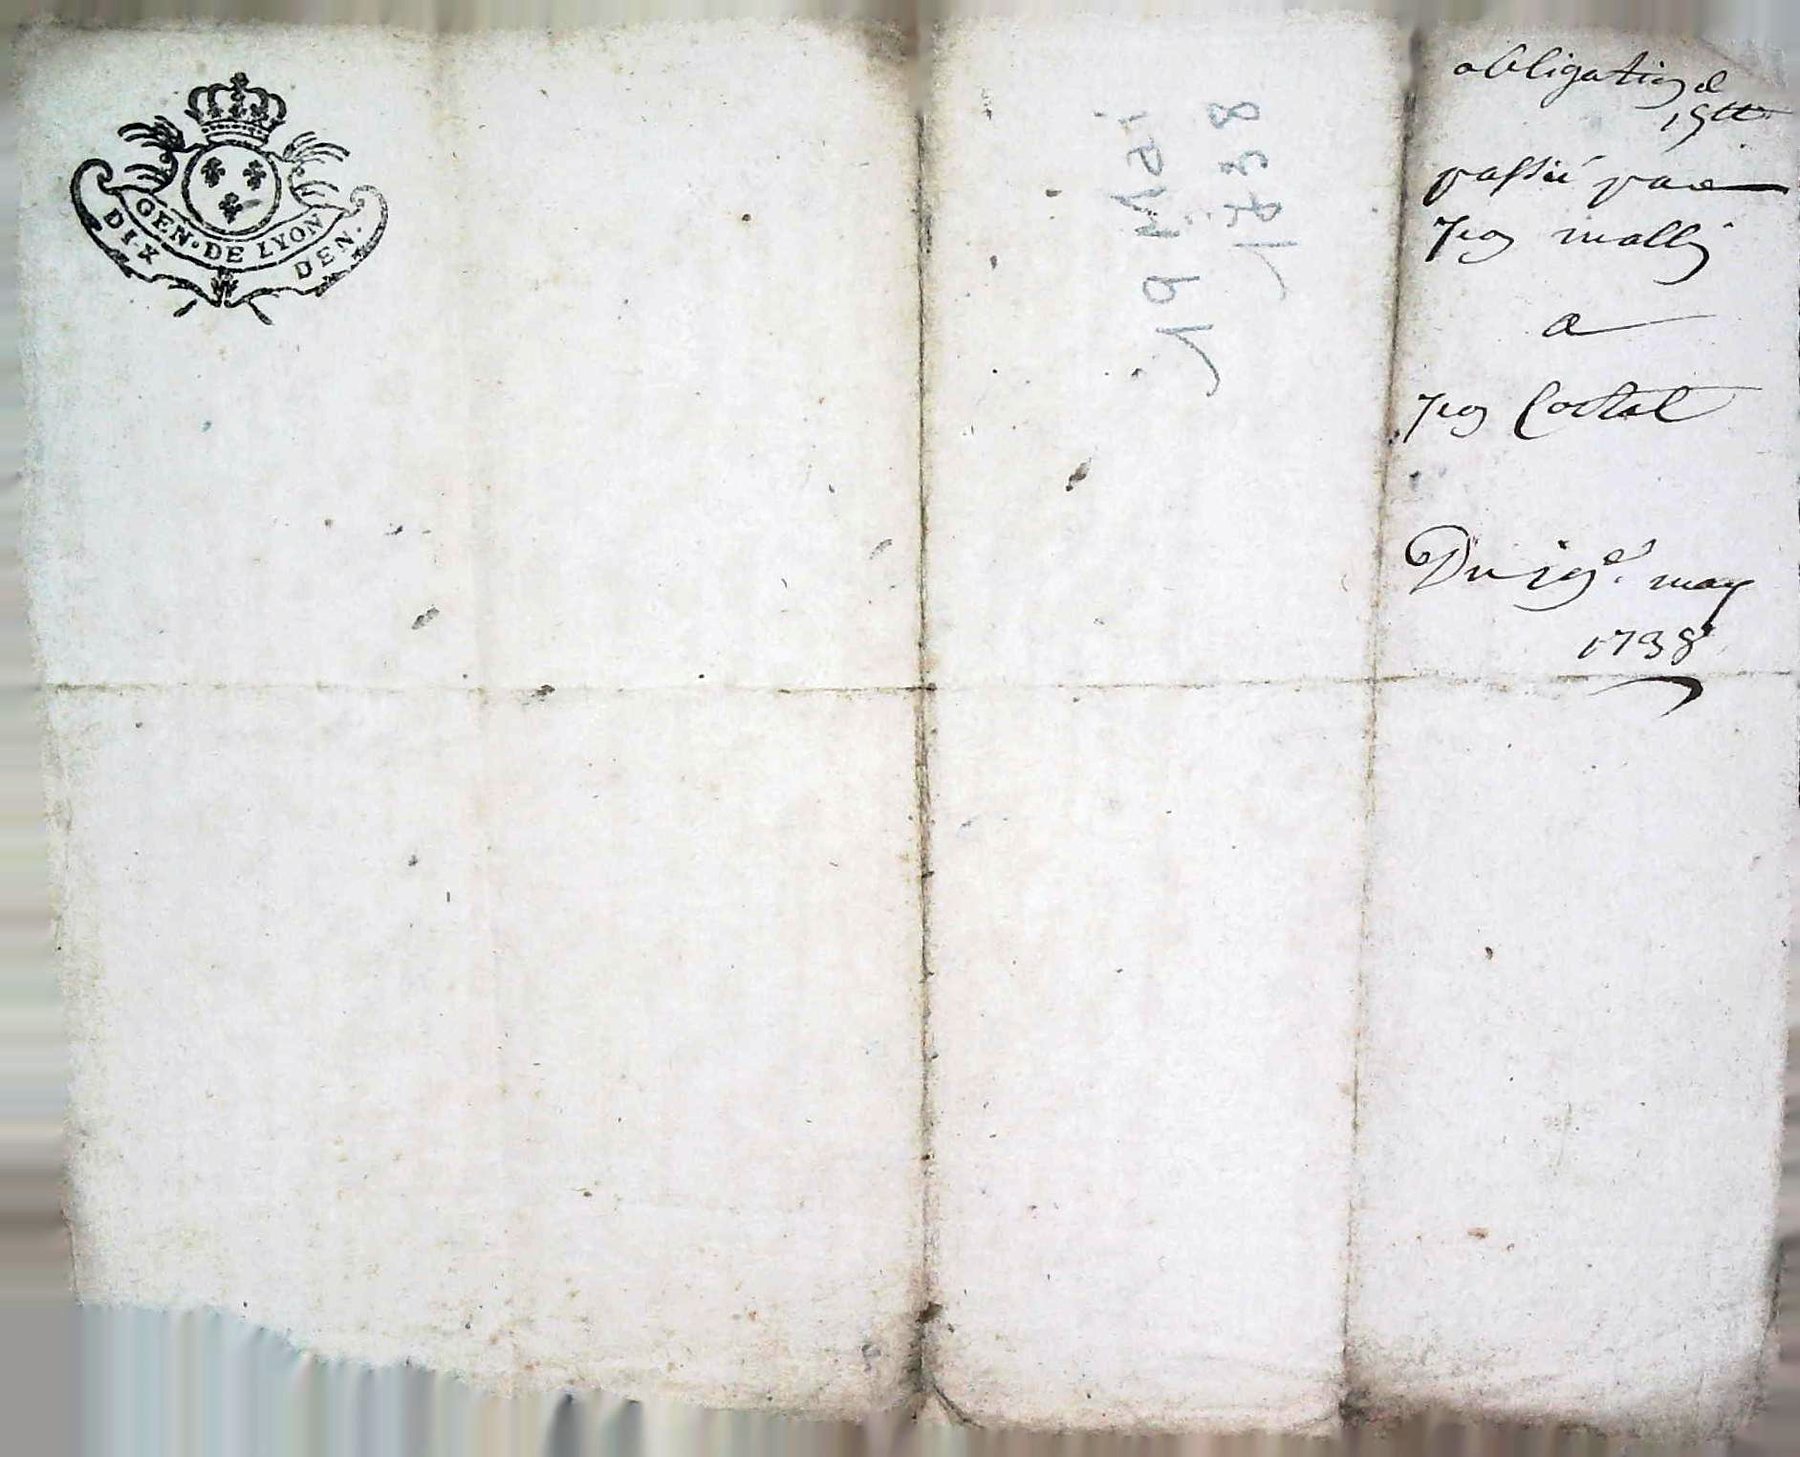 GEN · DE LYON
DIX DEN ·
19 Mai
1738
obligation de
15tt
passée par
malli
a
Costal
Du 19e may
1738